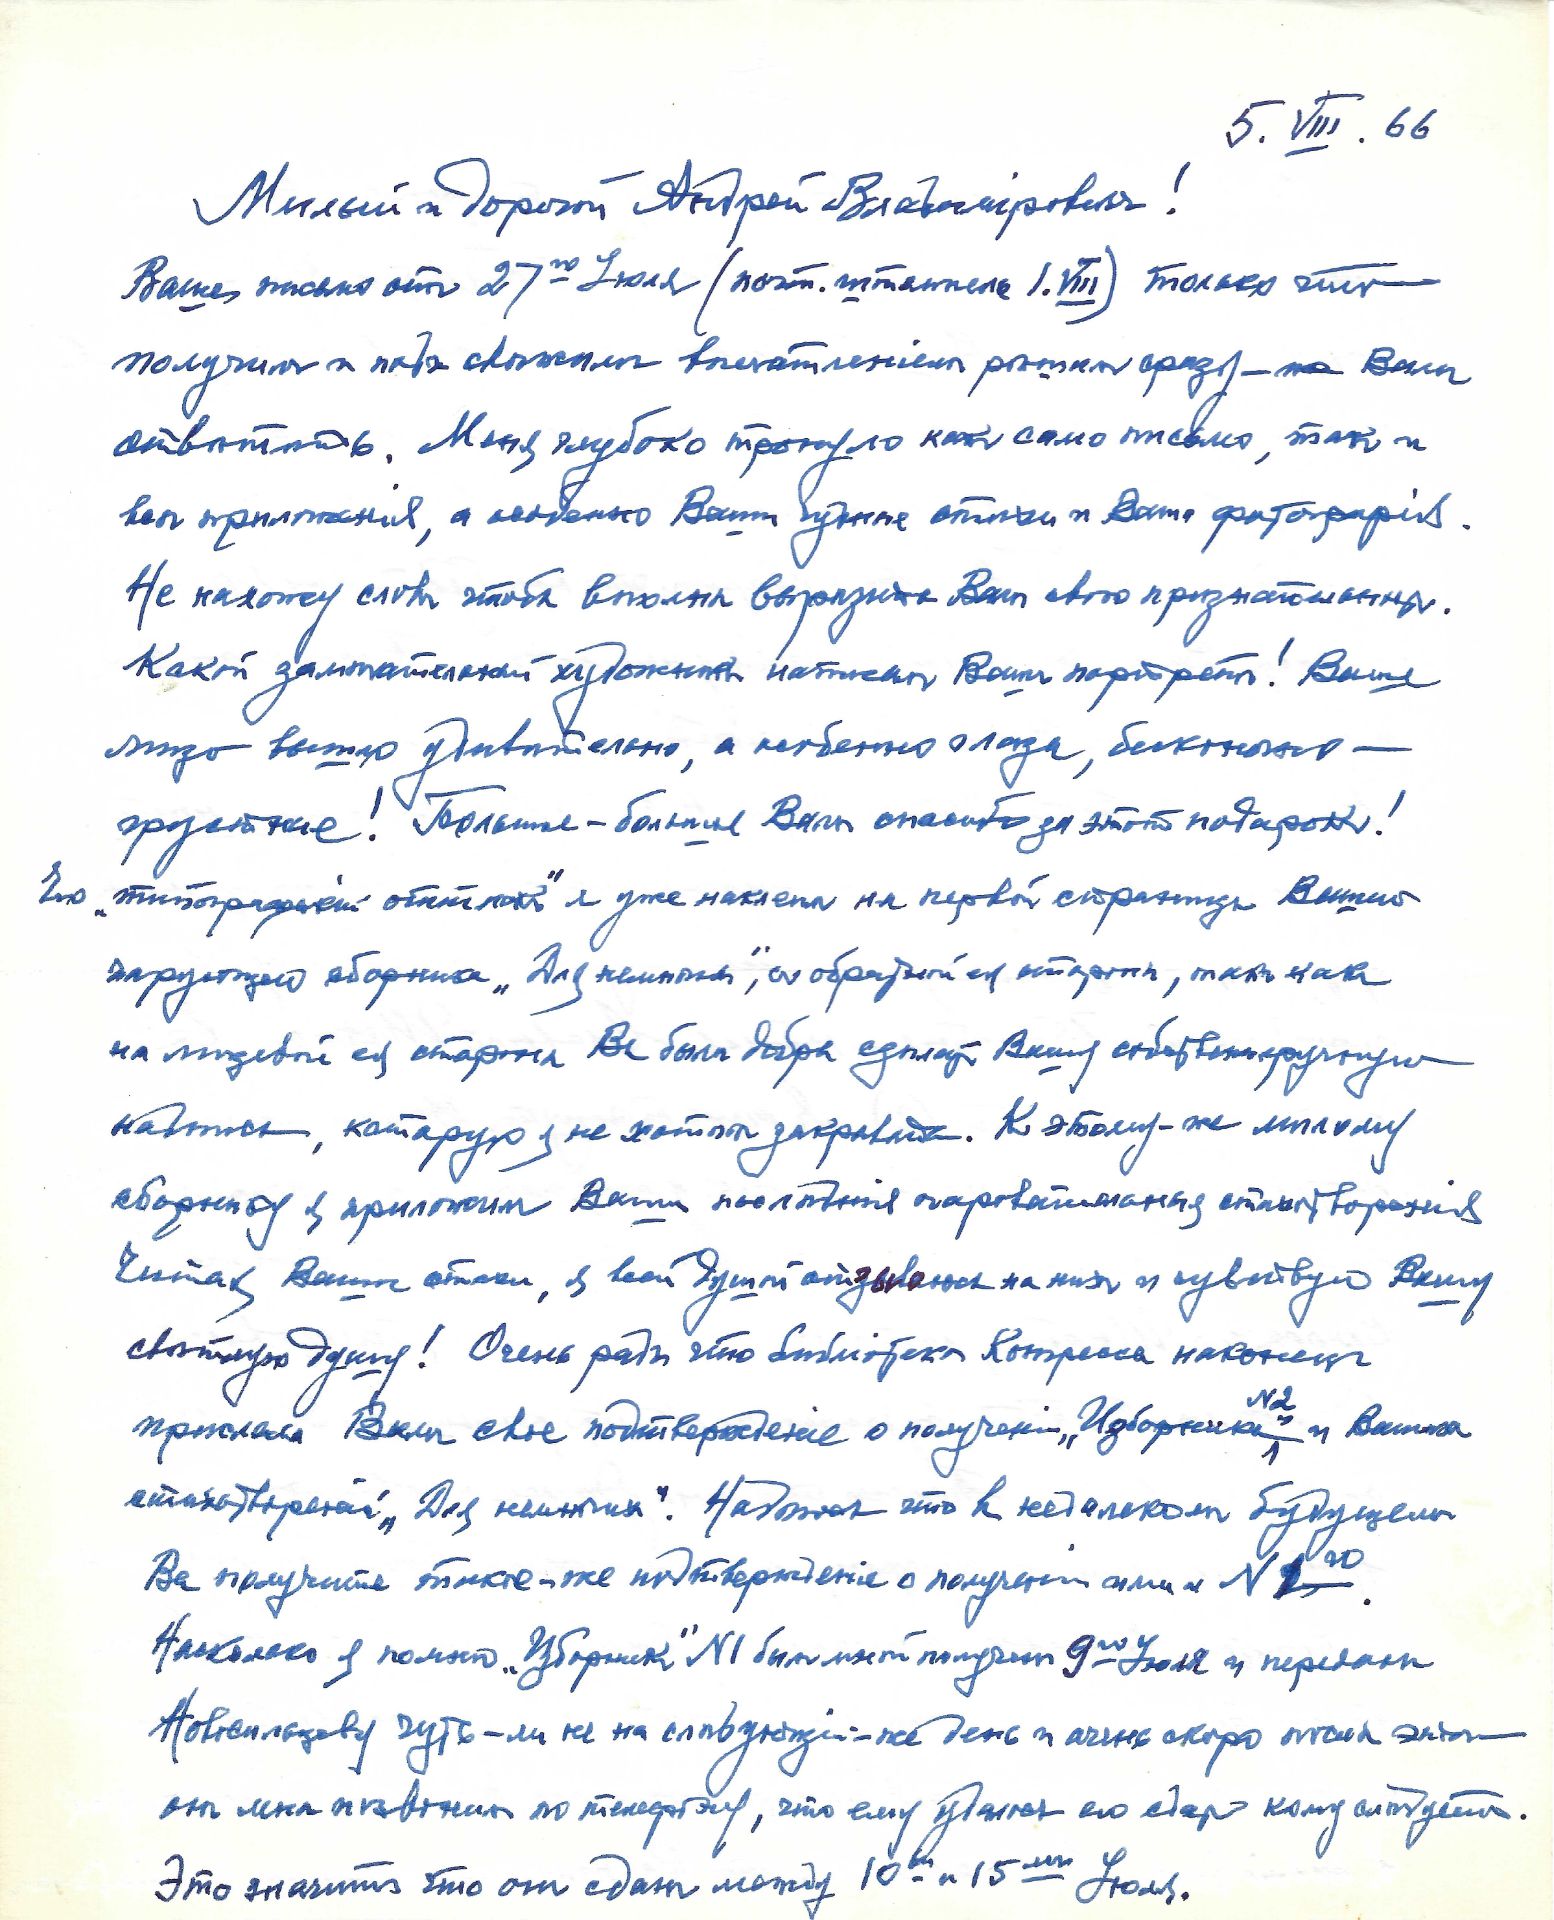 5. VIII. 66
Милый и дорогой Андрей Владимiровичъ!
Ваше письмо отъ 27го Июля (почт. штемпель 1. VIII) только что
получилъ и подъ свѣжимъ впечатлѣнiемъ рѣшилъ сразу Вамъ
отвѣтить. Меня глубоко тронуло какъ само письмо, такъ и
всѣ приложенiя, а особенно Ваши чудные стихи и Ваша фотографiя.
Не нахожу словъ чтобы вполнѣ выразить Вамъ свою признательность.
Какой замѣчательный художникъ написалъ Вашъ портретъ! Ваше
лицо вышло удивительно, а особенно глаза, бесконечно
грустные! Большое-большое Вамъ спасибо за этотъ подарокъ!
Его „типографскiй оттискъ" я уже наклеилъ на первой страницѣ Вашего
чарующаго сборника „Для немногихъ", съ обратной ея стороны, такъ какъ
на лицевой ея сторонѣ Вы были добры сдѣлать Вашу собственноручную
надпись, которую я не хотѣлъ закрывать. Къ этому-же милому
сборнику я приложилъ Ваши послѣднiя очаровательныя стихотворенiя
Читая Ваши стихи, я всей душой отзываюсь на нихъ и чувствую Вашу
свѣтлую душу! Очень радъ что библiотека Конгресса наконецъ
прислала Вамъ свое подтвержденiе о полученiи „Изборника" N2 1 и Вашихъ
стихотворенiй „Для немногихъ". Надѣюсь что въ недалекомъ будущемъ
Вы получите такое-же подтвержденiе о полученiи ими и N 1го.
Насколько я помню „Изборникъ" N1 былъ мной полученъ 9го Июля и переданъ
Новосильцеву чуть-ли не на слѣдующiй-же день и очень скоро послѣ этого
онъ мнѣ позвонилъ по телефону, что ему удалось его сдать кому слѣдуетъ.
Это значитъ что онъ сданъ между 10м и 15ми Июля.